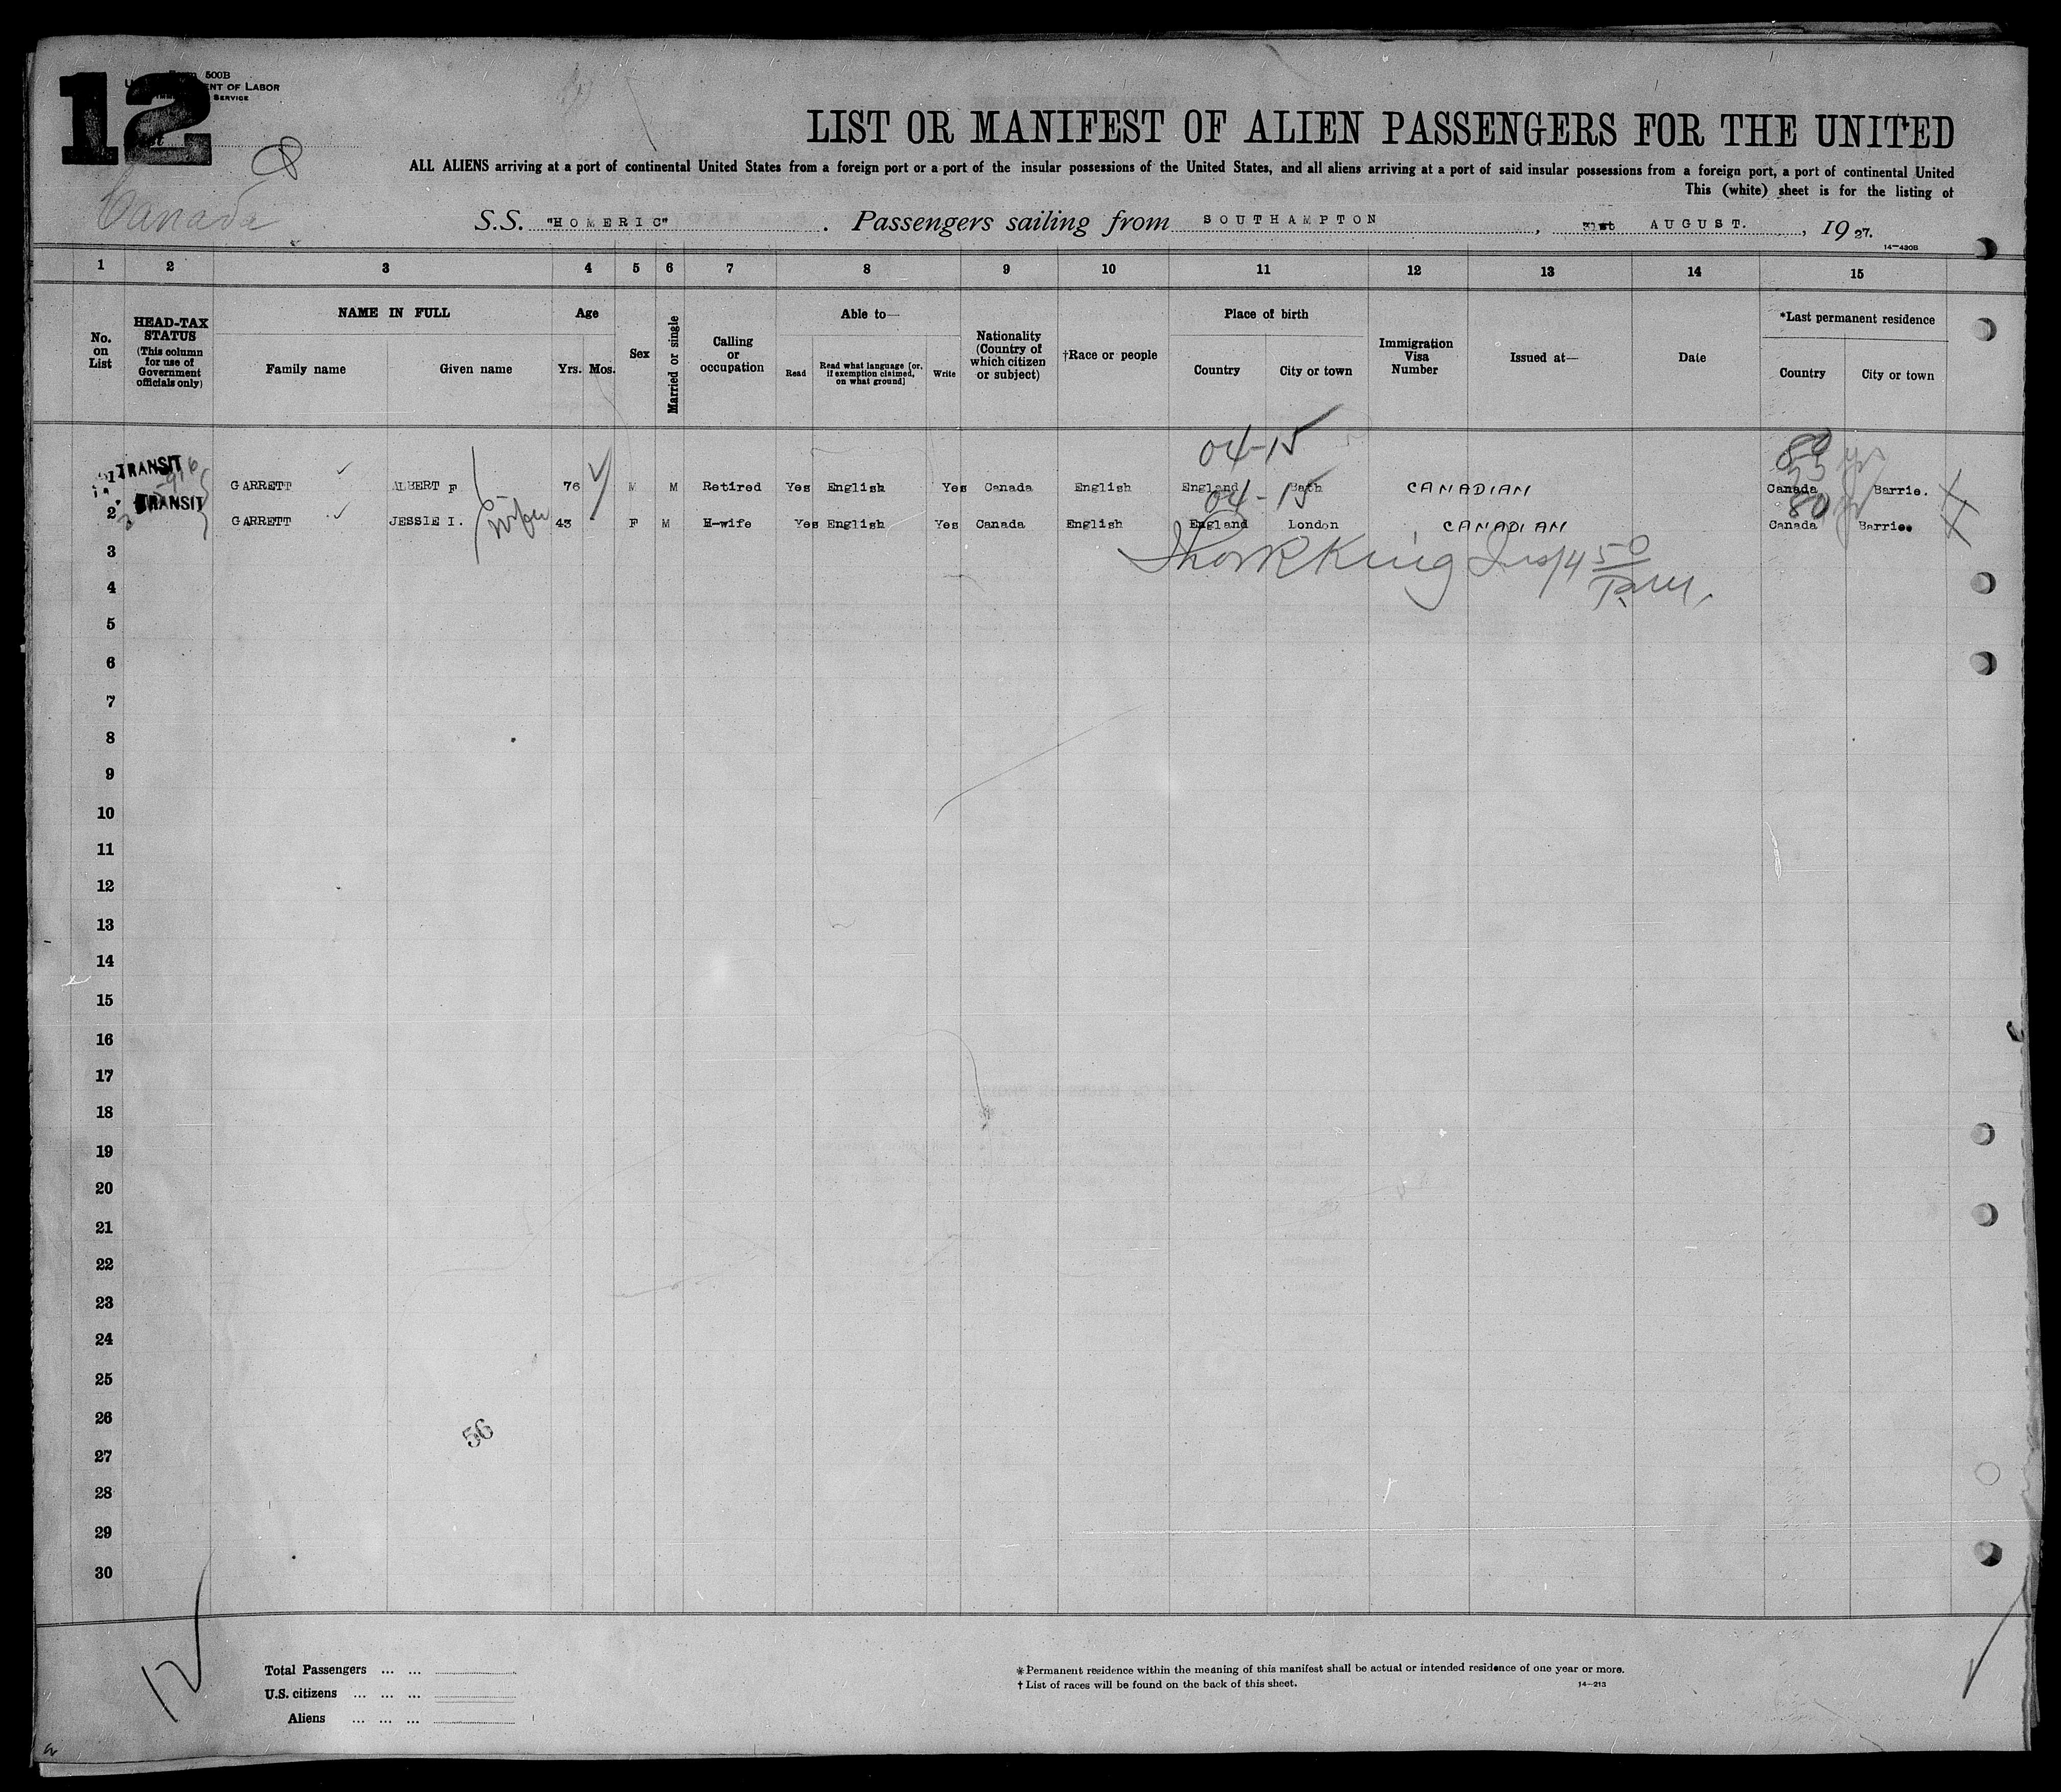 12
500B
OF LABOR
SERVICE
Canada
LIST OR MANIFEST OF ALIEN PASSENGERS FOR THE UNITED
ALL ALIENS arriving at a port of continental United States from a foreign port or a port of the insular possessions of the United States, and all aliens arriving at a port of said insular possessions from a foreign port, a port of continental United
This (white) sheet is for the listing of
S.S. "HOMERIC" . Passengers sailing from SOUTHAMPTON , 31st AUGUST. , 19 27.
14-430B
1 2 3 4 5 6 7 8 9 10 11 12 13 14 15
No. on List
HEAD-TAX STATUS (This column for use of Government officials only)
NAME IN FULL
Family name Given name
Age
Yrs. Mos.
Sex
Married or single
Calling or occupation
Able to—
Read Read what language [or, if exemption claimed, on what ground] Write
Nationality (Country of which citizen or subject)
†Race or people
Place of birth
Country City or town
Immigration Visa Number
Issued at—
Date
*Last permanent residence
Country City or town
04-15 80
TRANSIT 1 GARRETT ALBERT F 76 M M Retired Yes English Yes Canada English England Bath CANADIAN Canada Barrie.
04-15 80
TRANSIT 2 GARRETT JESSIE I. wife 43 F M H-wife Yes English Yes Canada English England London CANADIAN Canada Barrie.
3
King
4
5
6
7
8
9
10
11
12
13
14
15
16
17
18
19
20
21
22
23
24
25
26
56
27
28
29
30
12
Total Passengers ... ...
U.S. citizens ... ... ...
Aliens ... ... ...
*Permanent residence within the meaning of this manifest shall be actual or intended residence of one year or more.
† List of races will be found on the back of this sheet.
14-213